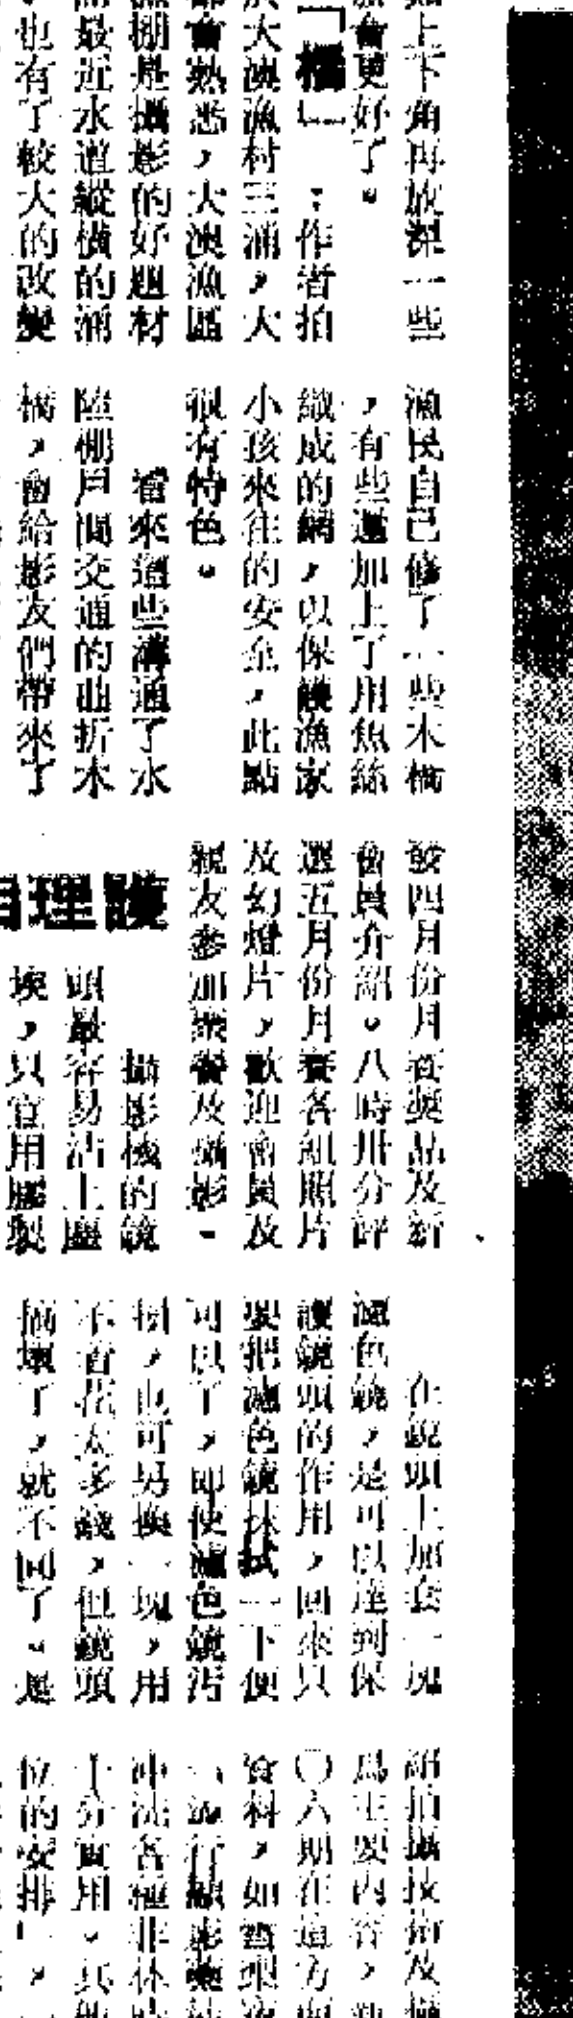 如上下角再放深一些
會更好了。
「橋」：作者拍
於大澳漁村三涌，大
都會熟悉，大澳漁區
棚是攝影的好題材
最近水道縱橫的涌
也有了較大的改變
漁民自己修了一些木橋
，有些還加上了用魚絲
織成的網，以保護漁家
小孩來往的安全，此點
很有特色。
看來這些溝通了水
陸棚戶間交通的曲折木
橋，會給影友們帶來了
發四月份月賽獎品及新
會員介紹。八時卅分評
選五月份月賽各組照片
及幻燈片，歡迎會員及
親友參加聚餐及攝影
護理
攝影機的鏡
頭最容易沾上塵
埃，只宜用膠製
在鏡頭上加套一塊
濾色鏡，是可以達到保
護鏡頭的作用，回來只
要把濾色鏡抹拭一下便
可以了，即使濾色鏡污
損，也可另換一塊，用
不着花太多錢，但鏡頭
搞壞了，就不同了。是
紹拍攝技術及
爲主要內容，
〇六期在這方面
資料，如
流行
冲洗各種菲林
十分實用。其他
位的安排」，